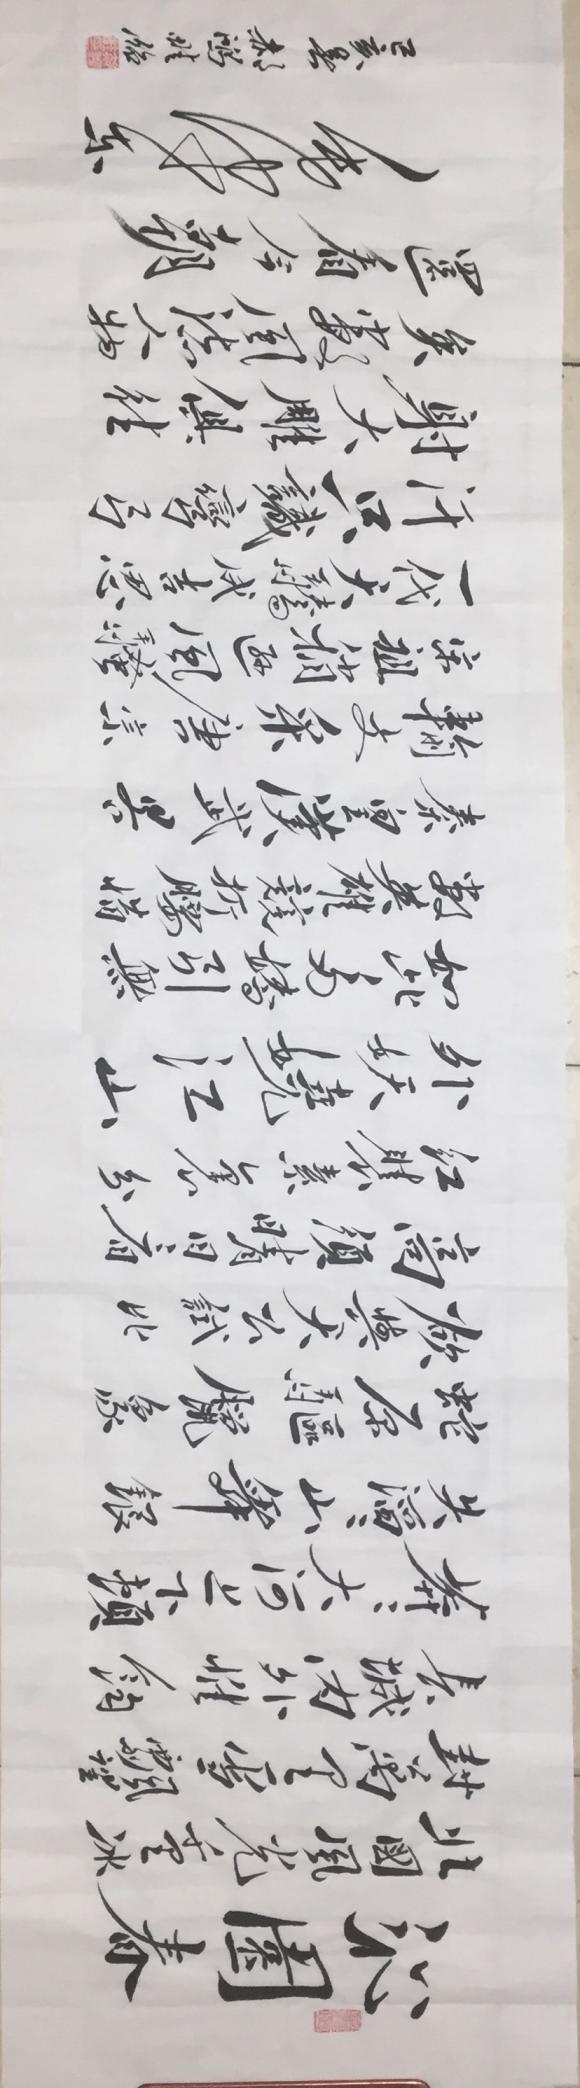 沁園春
北國風光千里冰
封萬里雪飄望
長城内外惟餘
莽莽大河上下頓
失滔滔山舞銀
蛇原驅臘象
欲與天公試比
高須晴日看
紅裝素裹分
外妖嬈江山
如此多嬌引無
數英雄競折腰惜
秦皇漢武畧
輸文采唐宗
宋祖稍遜風騷
一代天驕成吉思
汗只識彎弓
射大雕俱往
矣數風流人物
還看今朝
毛泽东
己亥夏